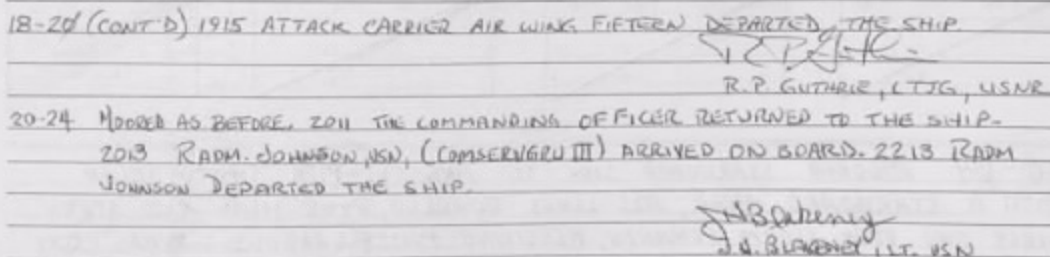 18-20 (CONT'D) 1915 ATTACK CARRIER AIR WING FIFTEEN DEPARTED THE SHIP.
R.P. GUTHRIE, LTJG, USNR
20-24 MOORED AS BEFORE. 2011 THE COMMANDING OFFICER RETURNED TO THE SHIP.
2013 RADM. JOHNSON, USN, (COMSERVGRU III) ARRIVED ON BOARD. 2213 RADM
JOHNSON DEPARTED THE SHIP.
J.N. BLAKENEY, LT. USN